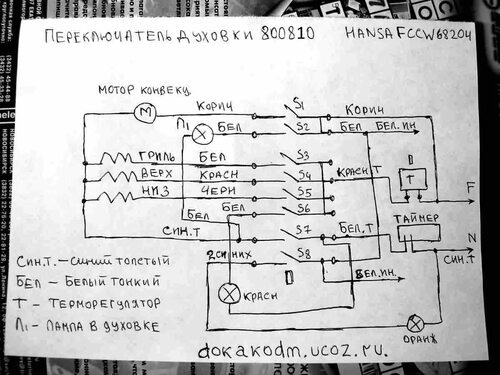 ПЕРЕКЛЮЧАТЕЛЬ ДУХОВКИ 800810 HANSA FCCW68204
МОТОР КОНВЕКЦ
М КОРИЧ S1 КОРИЧ
Л1 БЕЛ S2 БЕЛ БЕЛ.ИН
ГРИЛЬ БЕЛ S3
ВЕРХ КРАСН S4 КРАСН.Т Т
НИЗ ЧЕРН S5 F
БЕЛ S6 ТАЙМЕР
БЕЛ
СИН.Т S7 БЕЛ.Т N
2СИНИХ S8 СИН.Т
БЕЛ.ИН.
КРАСН
ОРАНЖ
СИН.Т.-СИНИЙ ТОЛСТЫЙ
БЕЛ - БЕЛЫЙ ТОНКИЙ
Т - ТЕРМОРЕГУЛЯТОР
Л1 - ЛАМПА В ДУХОВКЕ
dokakodm.ucoz.ru.